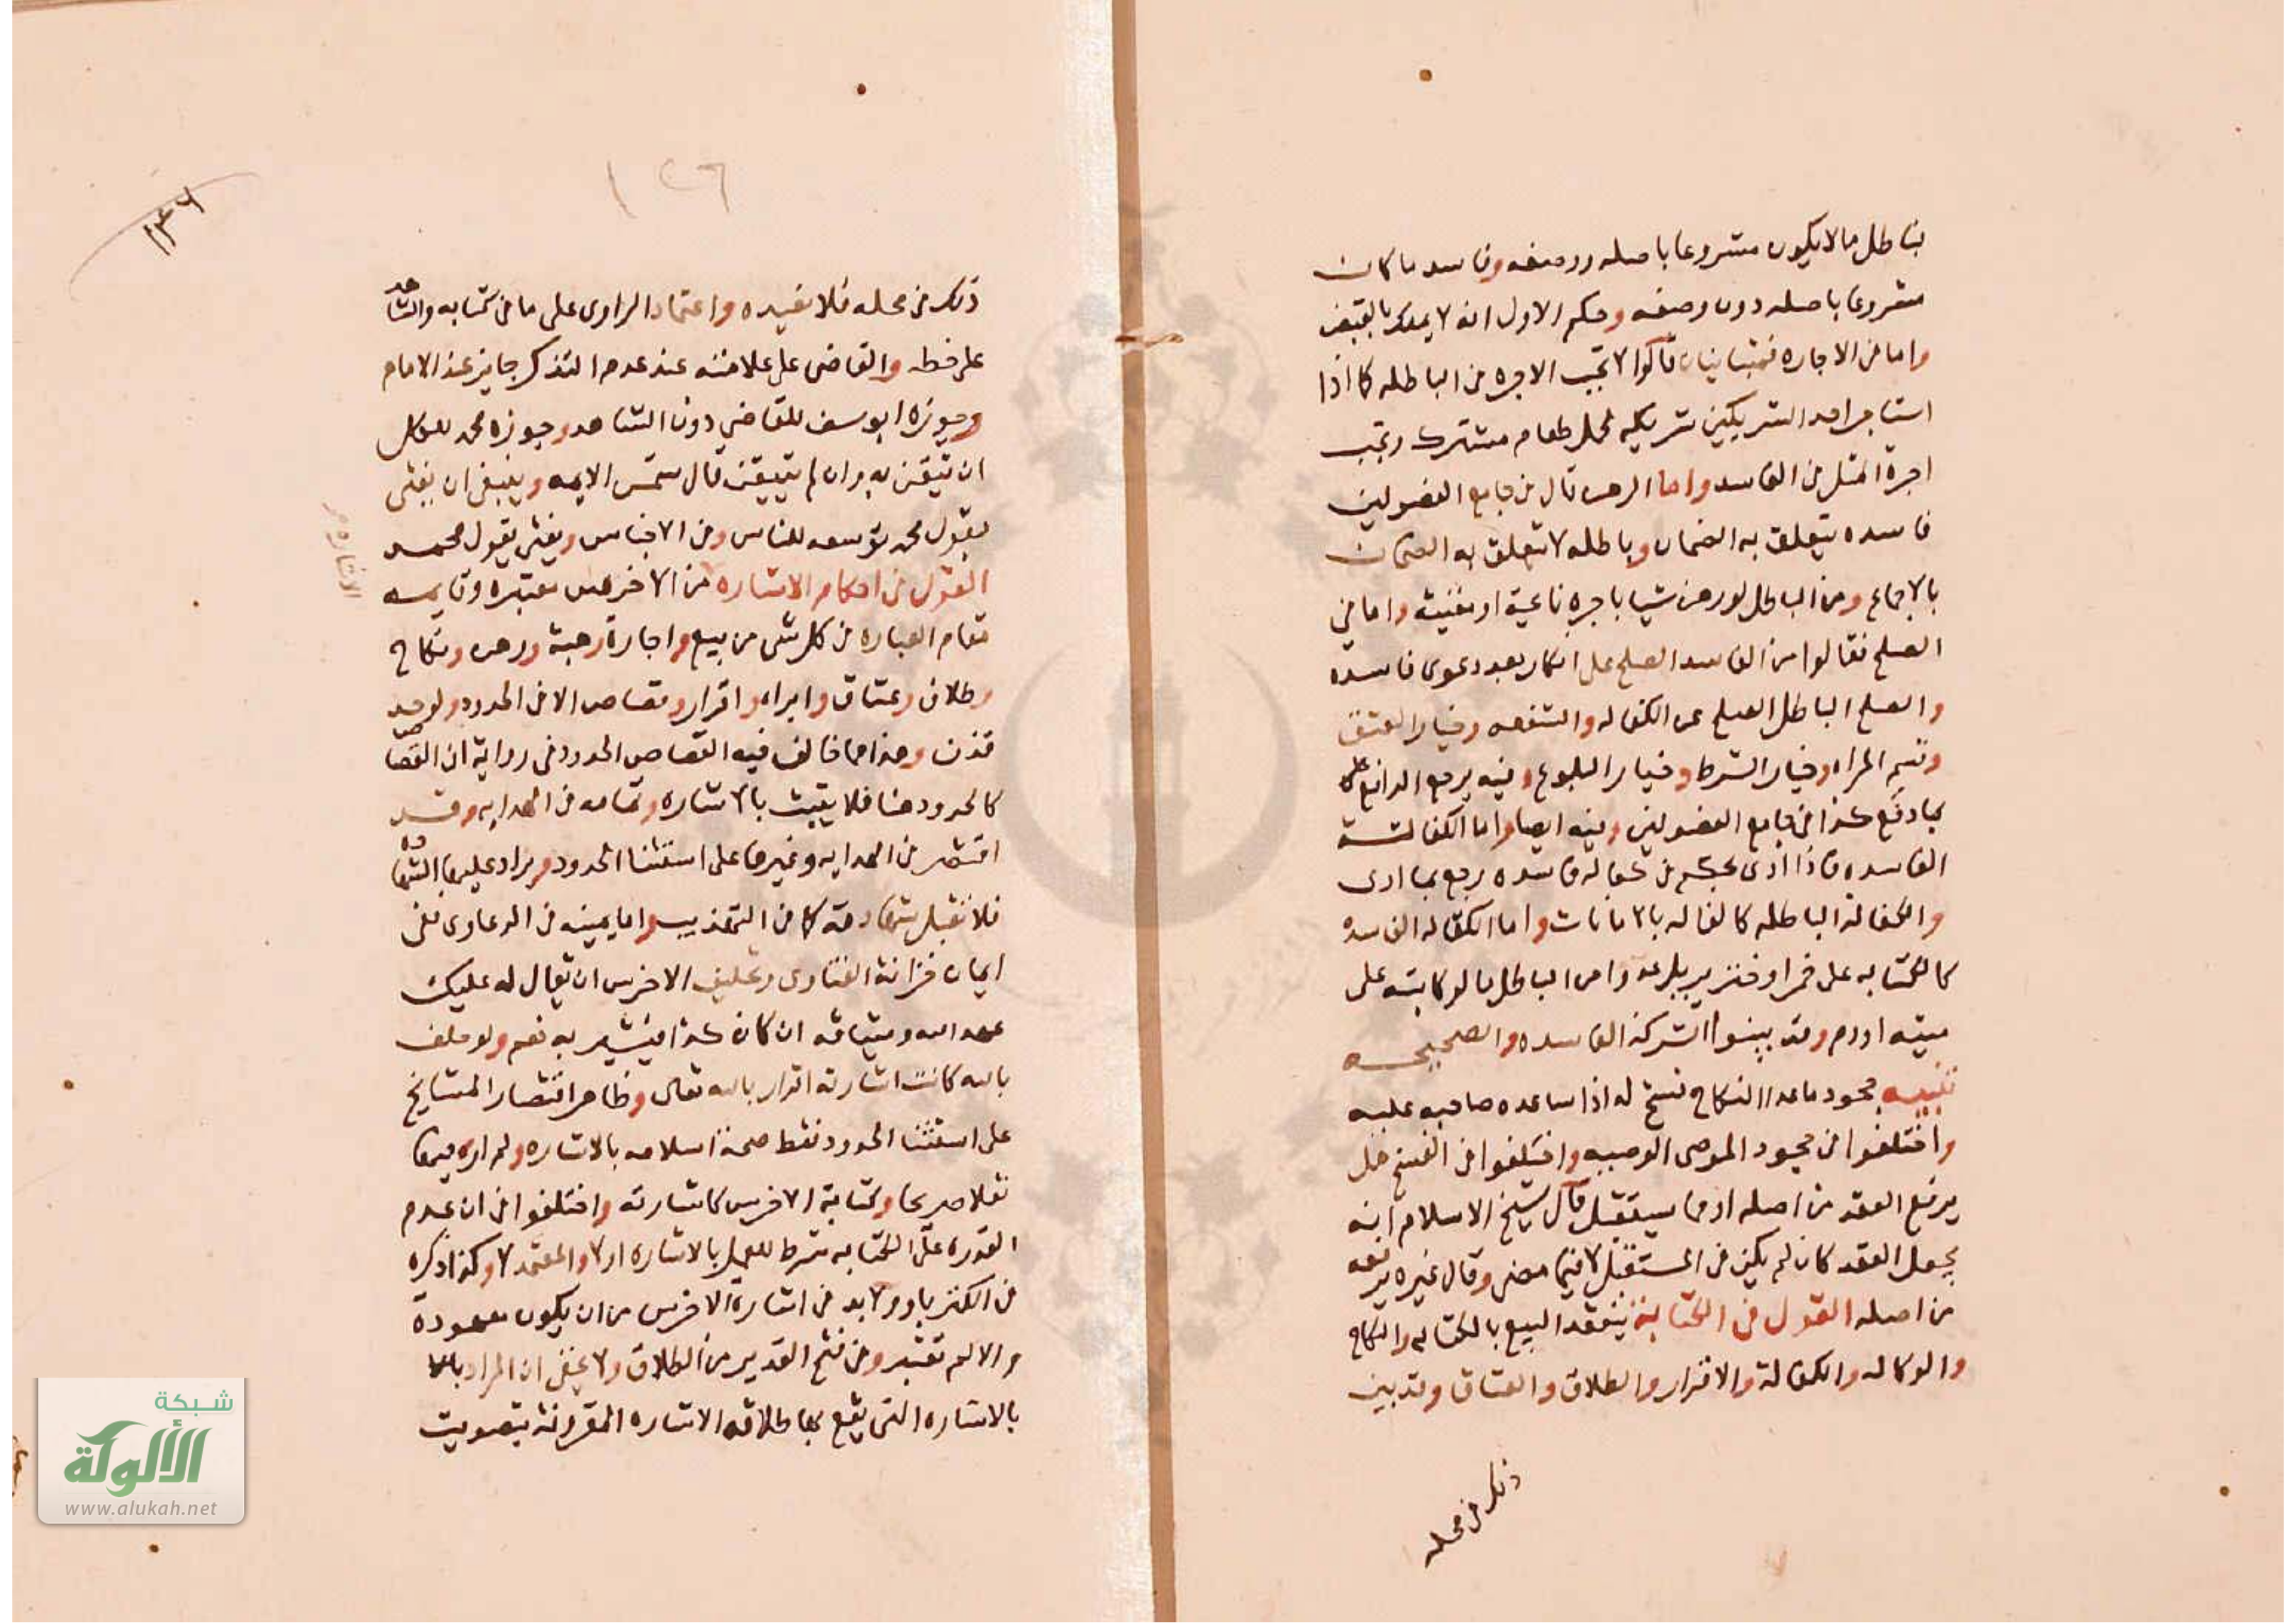 فباطل ما لا يكون مشروعا باصله ووصفه وفاسد ما كان
مشروعا باصله دون وصفه وحكم الاول انه لا يملك بالقبض
واما في الاجاره فمتباينان قالوا لا تجب الاجره في الباطله كما اذا
استاجر احد الشريكين شريكه لحمل طعام مشترك وتجب
اجرة المثل في الفاسد واما الرهن قال في جامع الفصولين
فاسده يتعلق به الضمان وباطله لا يتعلق به الضمان
بالاجماع ومن الباطل لو رهن شيا باجره نايحة او مغنية واما في
الصلح فقالوا من الفاسد الصلح على انكار بعد دعوى فاسده
والصلح الباطل الصلح عن الكفاله والشفعه وخيار العتق
وقسم المراه وخيار الشرط وخيار البلوغ وفيه يرجع الدافع
بما دفع كذا في جامع الفصولين وفيه ايضا واما الكفالة
الفاسده فاذا ادى بحكم كفاله فاسده رجع بما ادى
والكفالة الباطله كالكفاله بالامانات واما الكفاله الفاسده
كالكتابه على خمر او خنزير ومن الباطل ما لو كاتبه على
ميته او دم وقد بينوا الشركة الفاسده والصحيحه
تنبيه جحود ما عدا النكاح فسخ له اذا ساعده صاحبه عليه
واختلفوا في جحود الموصى الوصيه واختلفوا في الفسخ هل
يرفع العقد من اصله او فيما يستقبل قال شيخ الاسلام انه
يجعل العقد كان لم يكن في المستقبل لا فيما مضى وقال غيره يرفعه
من اصله القول في الكتابة ينعقد البيع بالكتابه والنكاح
والوكاله والكفالة والاقرار والطلاق والعتاق وقد بين
ذلك في محله
١٢٦
١٣٦
ذلك في محله فلا نعيده واعتماد الراوى على ما في كتابه والشاهد
على خطه والقاضى على علامته عند عدم التذكر جايز عند الامام
وجوزه ابو يوسف للقاضي دون الشاهد وجوزه محمد للكل
ان تيقن به وان لم يتيقن قال شمس الايمه وينبغي ان يفتى
بقول محمد توسعه للناس وفي الاجناس ويفتى بقول محمد
القول في احكام الاشاره من الاخرس معتبره وقايمه
مقام العباره في كل شى من بيع واجارة وهبة ورهن ونكاح
وطلاق وعتاق وابراء واقرار وقصاص الا في الحدود ولو حد
قذف وهذا مما خالف فيه القصاص الحدود وفي رواية ان القصاص
كالحدود هنا فلا يثبت بالاشاره وتمامه في الهدايه وقد
اقتصر في الهدايه وغيرها على استثنا الحدود ويراد عليها الشهاده
فلا تقبل شهادته كما في التهذيب واما يمينه في الدعاوى ففى
ايمان خزانة الفتاوى وتحليف الاخرس ان يقال له عليك
عهد الله وميثاقه ان كان كذا فيشير به نعم ولو حلف
بالله كانت اشارته اقرار بالله تعالى وظاهر اقتصار المشايخ
على استثنا الحدود فقط صحة اسلامه بالاشاره ولم اره فيها
نقلا صريحا وكتابة الاخرس كاشارته واختلفوا في ان عدم
القدره على الكتابه شرط للعمل بالاشاره او لا والمعتمد لا وكذا ذكره
في الكنز باو ولا بد في اشارة الاخرس من ان يكون معهودة
والا لم تعتبر وفي فتح القدير من الطلاق ولا يخفى ان المراد
بالاشاره التى يقع بها طلاقه الاشاره المقرونة بتصويت
الاشاره
شبكة
الألوكة
www.alukah.net